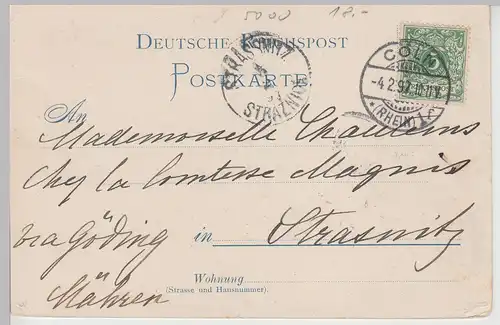 5000 18.-
DEUTSCHE REICHSPOST
POSTKARTE
STRASSNITZ
STRAZNICE
CÖLN
-4.2.97.
*(RHEIN)
5
An Mademoiselle
Chez la Comtesse Magnis
in Strasnitz
via Göding
Mähren
Wohnung
(Strasse und Hausnummer).